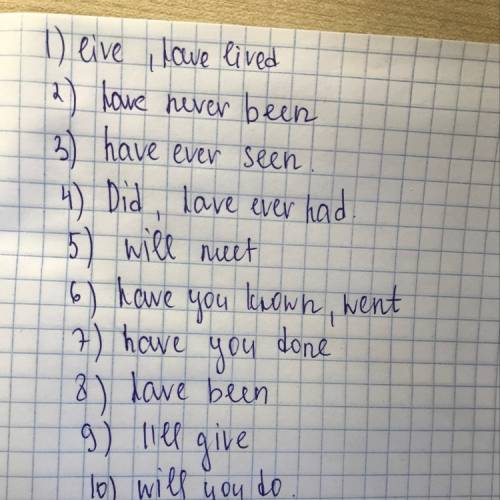 1) live , have lived
2) have never been
3) have ever seen.
4) Did, have ever had.
5) will meet
6) have you known, went
7) have you done
8) have been
9) I'll give
10) will you do.